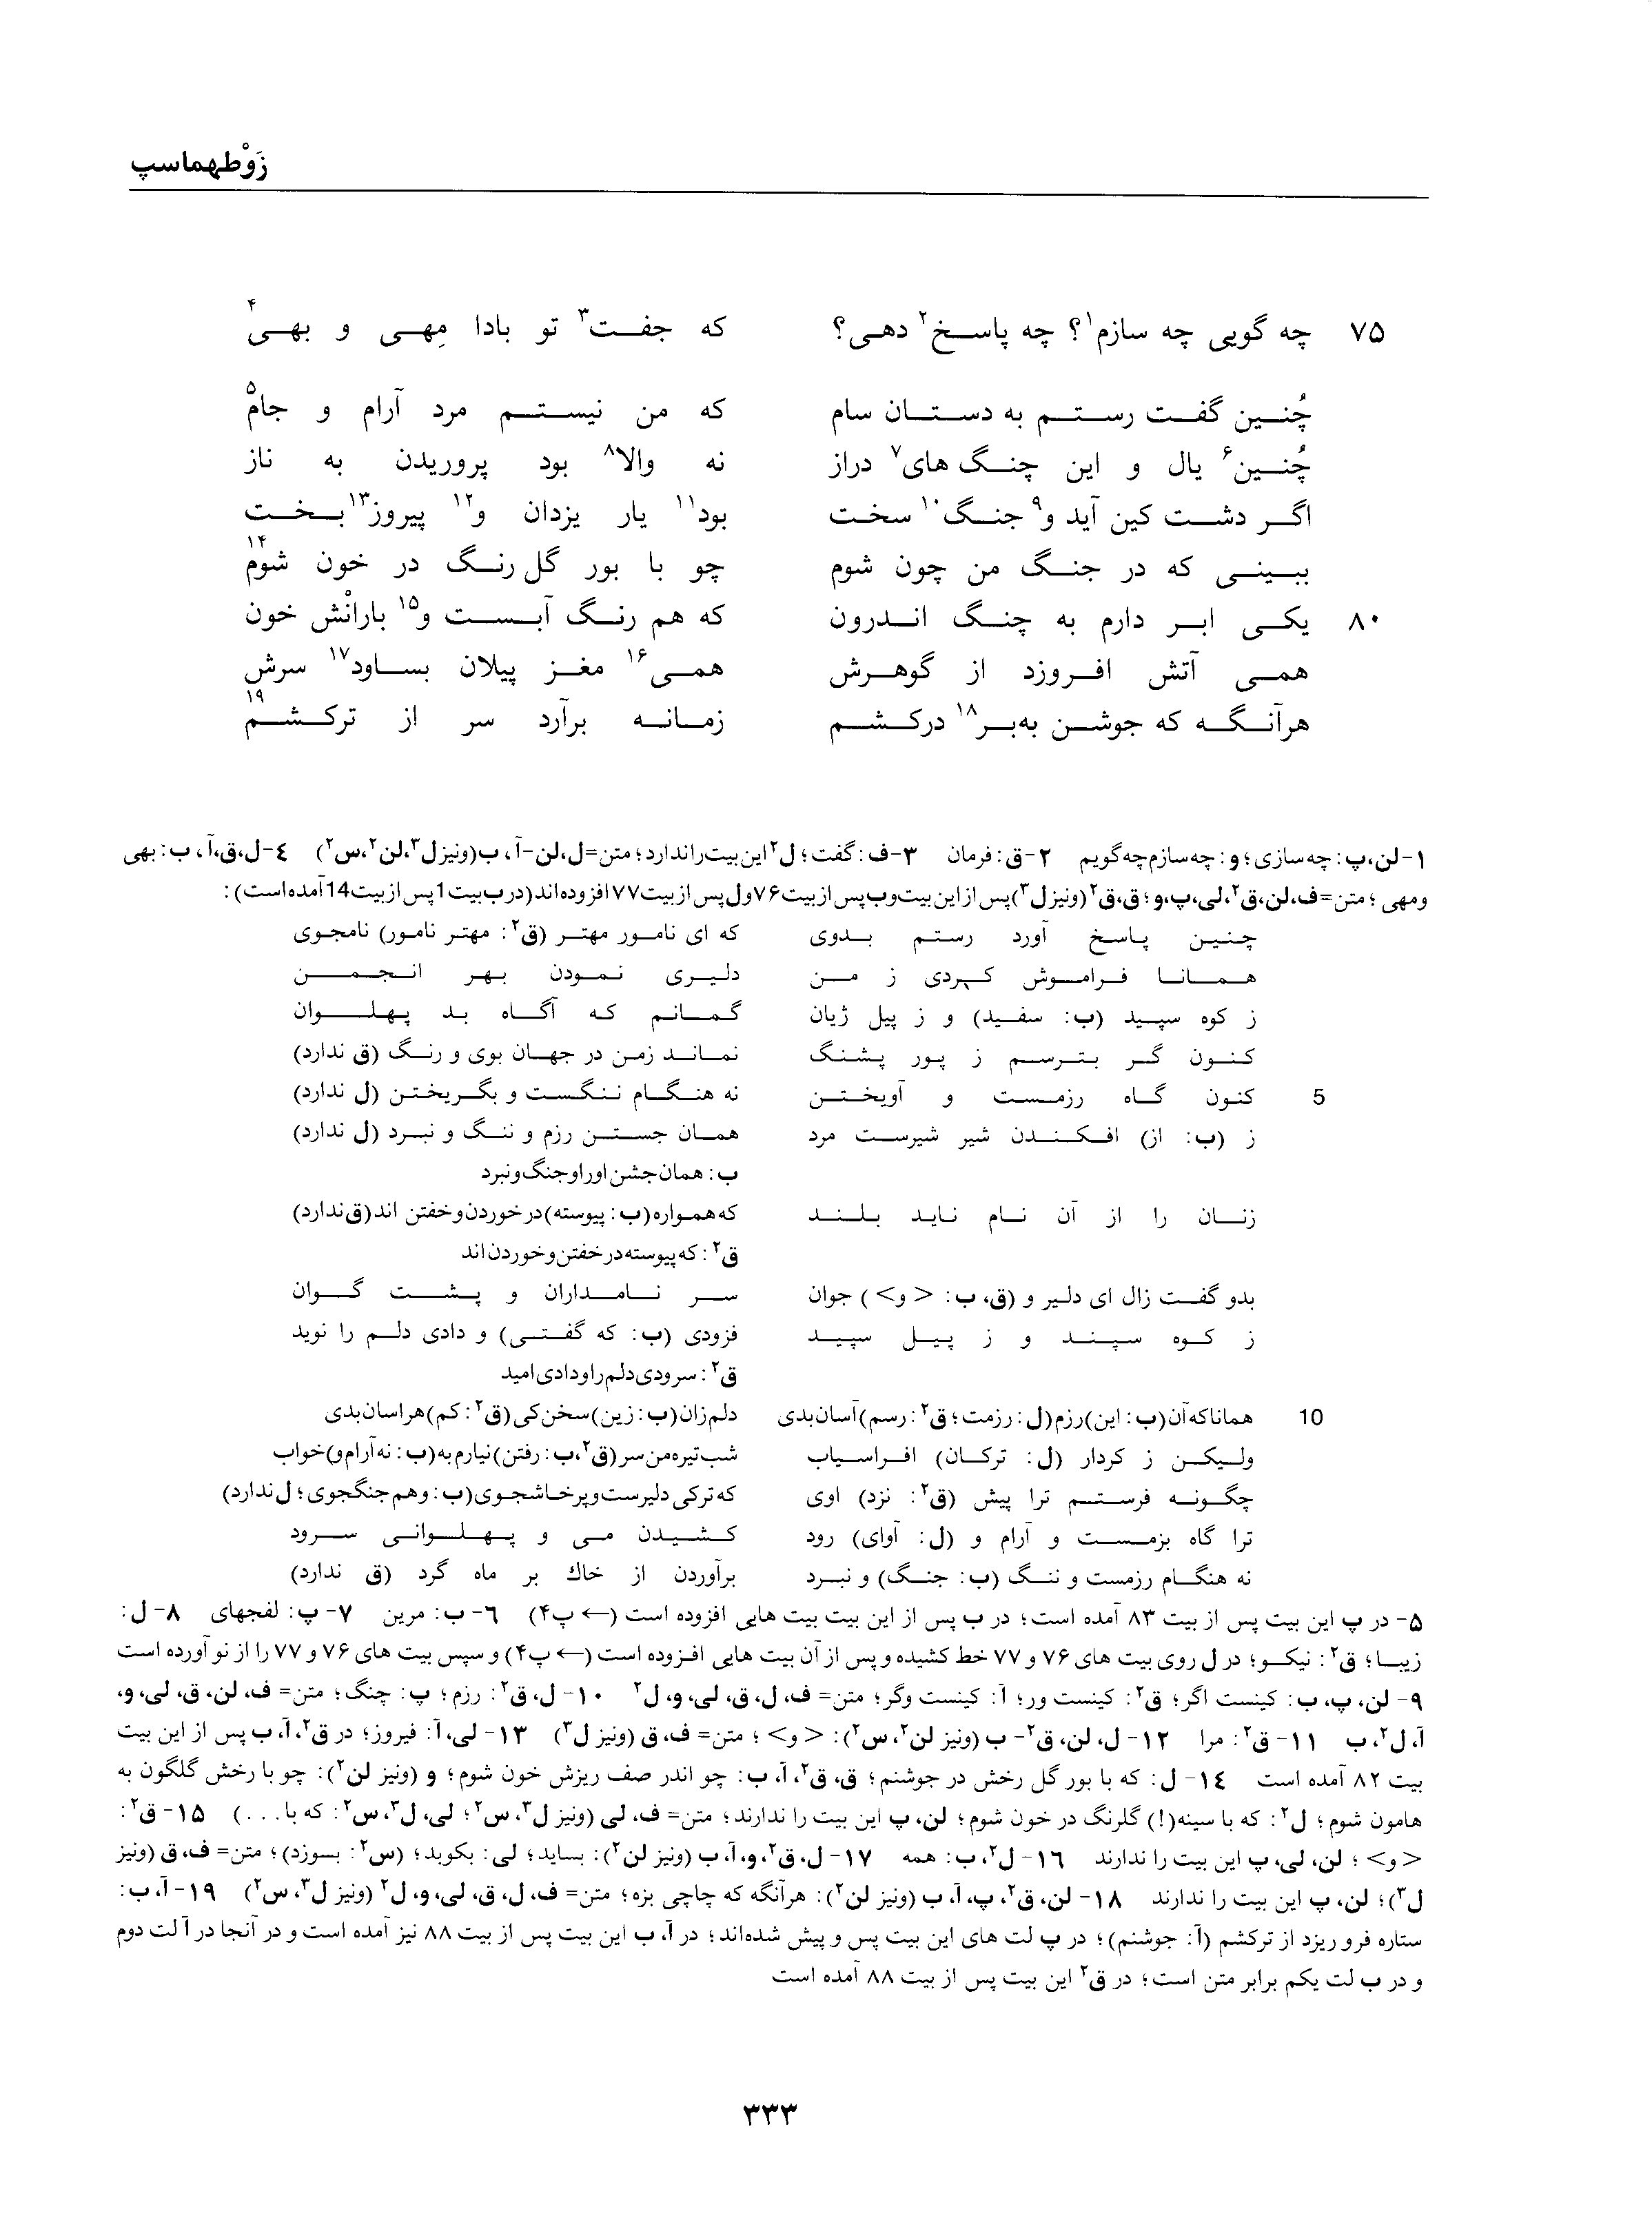 زَوْطهماسپ
۷۵ چه گویی چه سازم۱؟ چه پاسخ۲ دهی؟ که جفت۳ تو بادا مِهی و بهی۴
چُنین گفت رستم به دستان سام که من نیستم مرد آرام و جام۵
چُنین۶ یال و این چنگ‌های۷ دراز نه والا۸ بود پروریدن به ناز
اگر دشت کین آید و۹ جنگ۱۰ سخت بود۱۱ یار یزدان و۱۲ پیروز۱۳بخت
ببینی که در جنگ من چون شوم چو با بور گل‌رنگ در خون شوم۱۴
۸۰ یکی ابر دارم به چنگ اندرون که هم رنگ آبست و۱۵ بارانْش خون
همی آتش افروزد از گوهرش همی۱۶ مغز پیلان بساود۱۷ سرش
هرآنگه که جوشن به‌بر۱۸ درکشم زمانه برآرد سر از ترکشم۱۹
۱- لن، پ: چه سازی؛ و: چه سازم چه گویم ۲- ق: فرمان ۳- ف: گفت؛ ل۲ این بیت را ندارد؛ متن= ل، لن- آ، ب (ونیز ل۳، لن۲، س۲) ٤- ل، ق، آ، ب: بهی
ومهی؛ متن= ف، لن، ق۲، لی، پ، و؛ ق، ق۲ (ونیز ل۳) پس از این بیت وب پس از بیت ۷۶ ول پس از بیت ۷۷ افزوده‌اند (در ب بیت 1 پس از بیت 14 آمده است):
چنین پاسخ آورد رستم بدوی که ای نامور مهتر (ق۲: مهتر نامور) نامجوی
همانا فراموش کردی ز من دلیری نمودن بهر انجمن
ز کوه سپید (ب: سفید) و ز پیل ژیان گمانم که آگاه بد پهلوان
کنون گر بترسم ز پور پشنگ نماند زمن در جهان بوی و رنگ (ق ندارد)
5 کنون گاه رزمست و آویختن نه هنگام ننگست و بگریختن (ل ندارد)
ز (ب: از) افکندن شیر شیرست مرد همان جستن رزم و ننگ و نبرد (ل ندارد)
ب: همان جشن اور او جنگ و نبرد
زنان را از آن نام ناید بلند که همواره (ب: پیوسته) در خوردن و خفتن اند (ق ندارد)
ق۲: که پیوسته در خفتن و خوردن اند
بدو گفت زال ای دلیر و (ق، ب: < و>) جوان سر نامداران و پشت گوان
ز کوه سپند و ز پیل سپید فزودی (ب: که گفتی) و دادی دلم را نوید
ق۲: سرودی دلم را و دادی امید
10 همانا که آن (ب: این) رزم (ل: رزمت؛ ق۲: رسم) آسان بدی دلم زان (ب: زین) سخن کی (ق۲: کم) هراسان بدی
ولیکن ز کردار (ل: ترکان) افراسیاب شب تیره من سر (ق۲، ب: رفتن) نیارم به (ب: نه آرام و) خواب
چگونه فرستم ترا پیش (ق۲: نزد) اوی که ترکی دلیرست و پرخاشجوی (ب: و هم جنگجوی؛ ل ندارد)
ترا گاه بزمست و آرام و (ل: آوای) رود کشیدن می و پهلوانی سرود
نه هنگام رزمست و ننگ (ب: جنگ) و نبرد برآوردن از خاك بر ماه گرد (ق ندارد)
۵- در پ این بیت پس از بیت ۸۳ آمده است؛ در ب پس از این بیت بیت هایی افزوده است (← پ۴) ٦- ب: مرین ۷- پ: لفجهای ۸- ل:
زیبا؛ ق۲: نیکو؛ در ل روی بیت های ۷۶ و ۷۷ خط کشیده و پس از آن بیت هایی افزوده است (← پ۴) و سپس بیت های ۷۶ و ۷۷ را از نو آورده است
۹- لن، پ، ب: کینست اگر؛ ق۲: کینست ور؛ آ: کینست وگر؛ متن= ف، ل، ق، لی، و، ل۲ ۱۰- ل، ق۲: رزم؛ پ: چنگ؛ متن= ف، لن، ق، لی، و،
آ، ل۲، ب ۱۱- ق۲: مرا ۱۲- ل، لن، ق۲- ب (ونیز لن۲، س۲): < و>؛ متن= ف، ق (ونیز ل۳) ۱۳- لی، آ: فیروز؛ در ق۲، آ، ب پس از این بیت
بیت ۸۲ آمده است ۱٤- ل: که با بور گل رخش در جوشنم؛ ق، ق۲، آ، ب: چو اندر صف ریزش خون شوم؛ و (ونیز لن۲): چو با رخش گلگون به
هامون شوم؛ ل۲: که با سینه(!) گلرنگ در خون شوم؛ لن، پ این بیت را ندارند؛ متن= ف، لی (ونیز ل۳، س۲؛ لی، ل۳، س۲: که با...) ۱۵- ق۲:
< و>؛ لن، لی، پ این بیت را ندارند ۱٦- ل۲، ب: همه ۱۷- ل، ق۲، و، آ، ب (ونیز لن۲): بساید؛ لی: بکوبد؛ (س۲: بسوزد)؛ متن= ف، ق (ونیز
ل۳)؛ لن، پ این بیت را ندارند ۱۸- لن، ق۲، پ، آ، ب (ونیز لن۲): هرآنگه که چاچی بزه؛ متن= ف، ل، ق، لی، و، ل۲ (ونیز ل۳، س۲) ۱۹- آ، ب:
ستاره فرو ریزد از ترکشم (آ: جوشنم)؛ در پ لت های این بیت پس و پیش شده‌اند؛ در آ، ب این بیت پس از بیت ۸۸ نیز آمده است و در آنجا در آ لت دوم
و در ب لت یکم برابر متن است؛ در ق۲ این بیت پس از بیت ۸۸ آمده است
۳۳۳